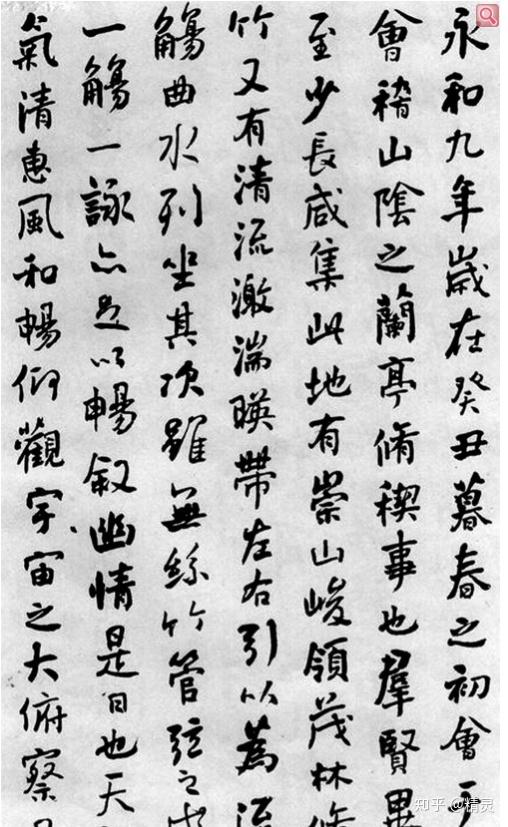 永和九年歲在癸丑暮春之初會
會稽山陰之蘭亭脩稧事也羣賢畢
至少長咸集此地有崇山峻領茂林脩
竹又有清流激湍暎帶左右引以為流
觴曲水列坐其次雖無絲竹管弦之
一觴一詠亦足以暢敘幽情是日也天
氣清惠風和暢仰觀宇宙之大俯察
知乎 @精灵